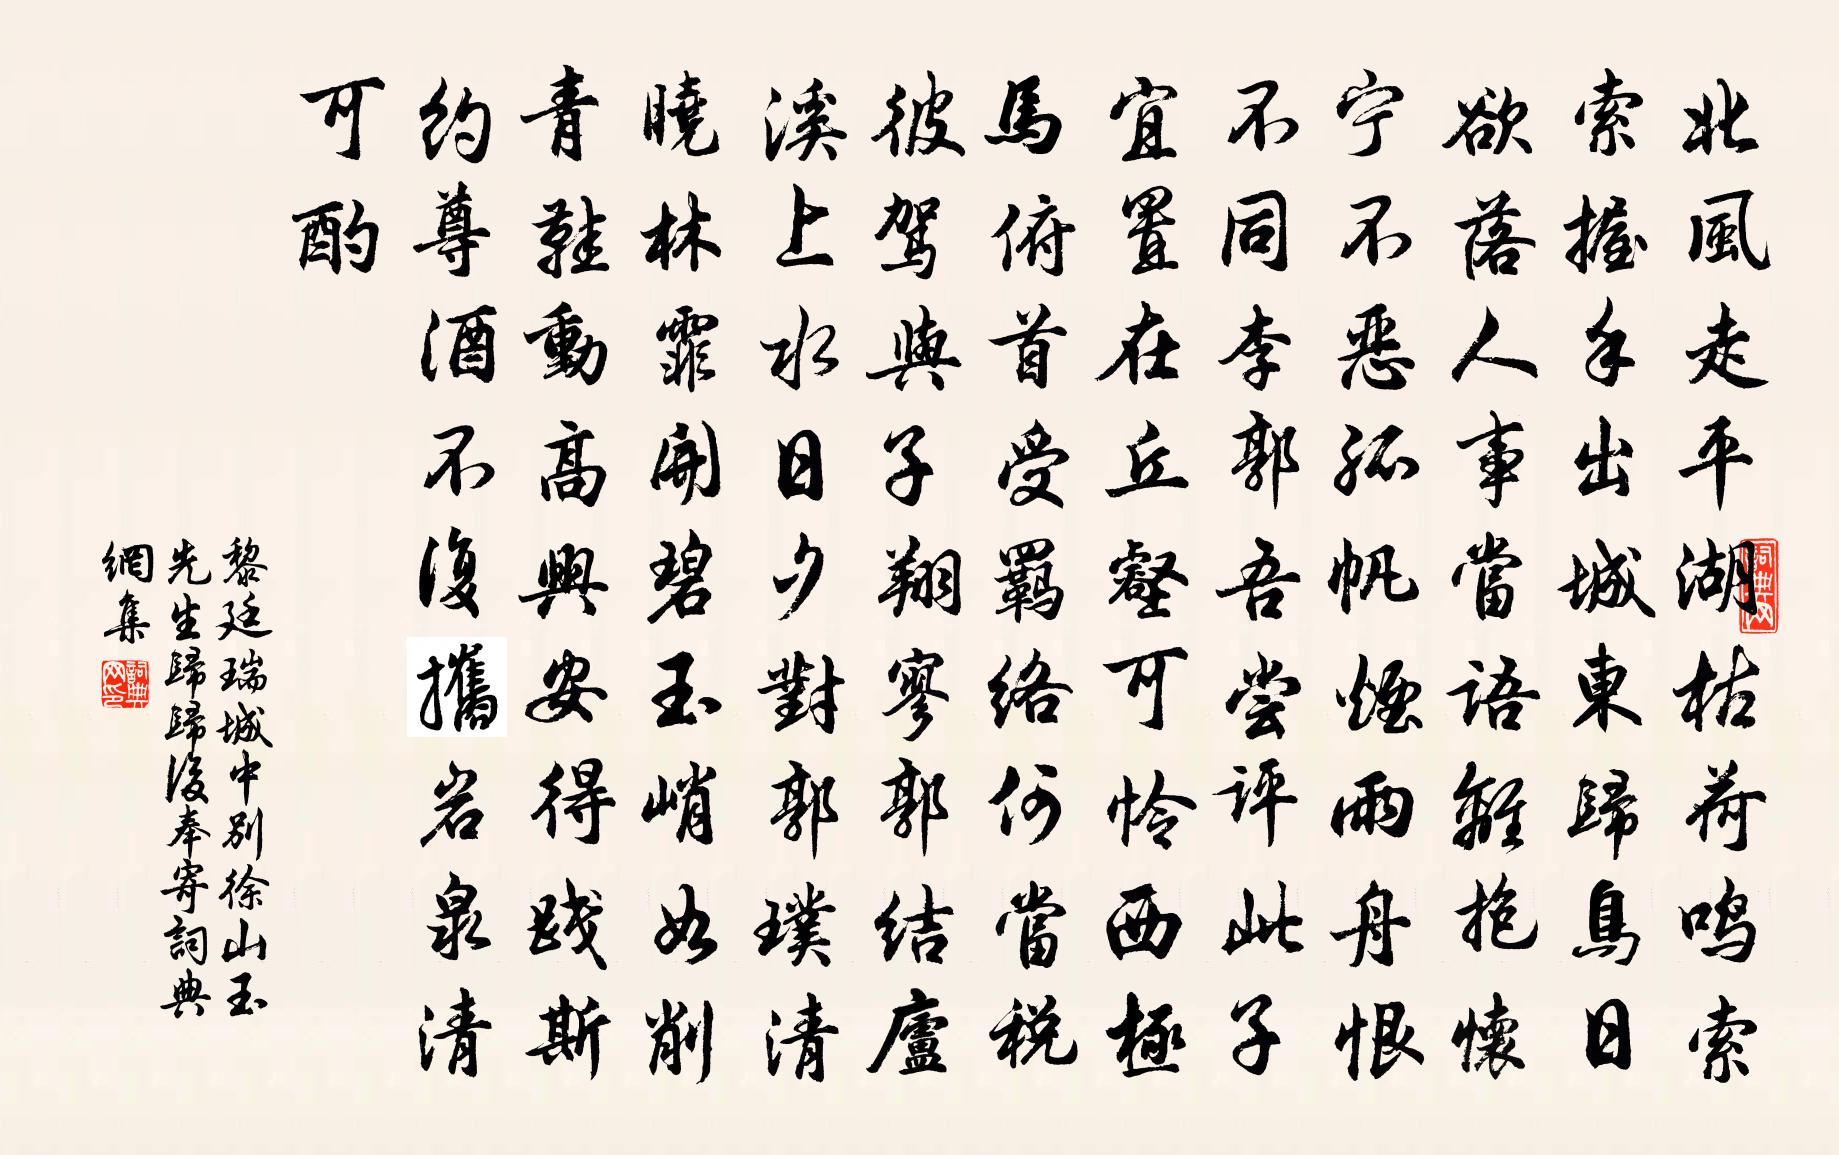 北風走平湖枯荷鳴索
索握手出城東歸鳥日
欲落人事當語離抱懷
宁不惡孤帆煙雨舟恨
不同李郭吾尝評此子
宜置在丘壑可怜西極
馬俯首受羈络何當税
彼駕與子翔寥郭结廬
溪上水日夕對郭璞清
曉林霏開碧玉峭如削
青鞋動高興安得踐斯
约尊酒不復攜岩泉清
可酌
黎廷瑞城中別徐山玉
先生歸歸後奉寄詞典
網集